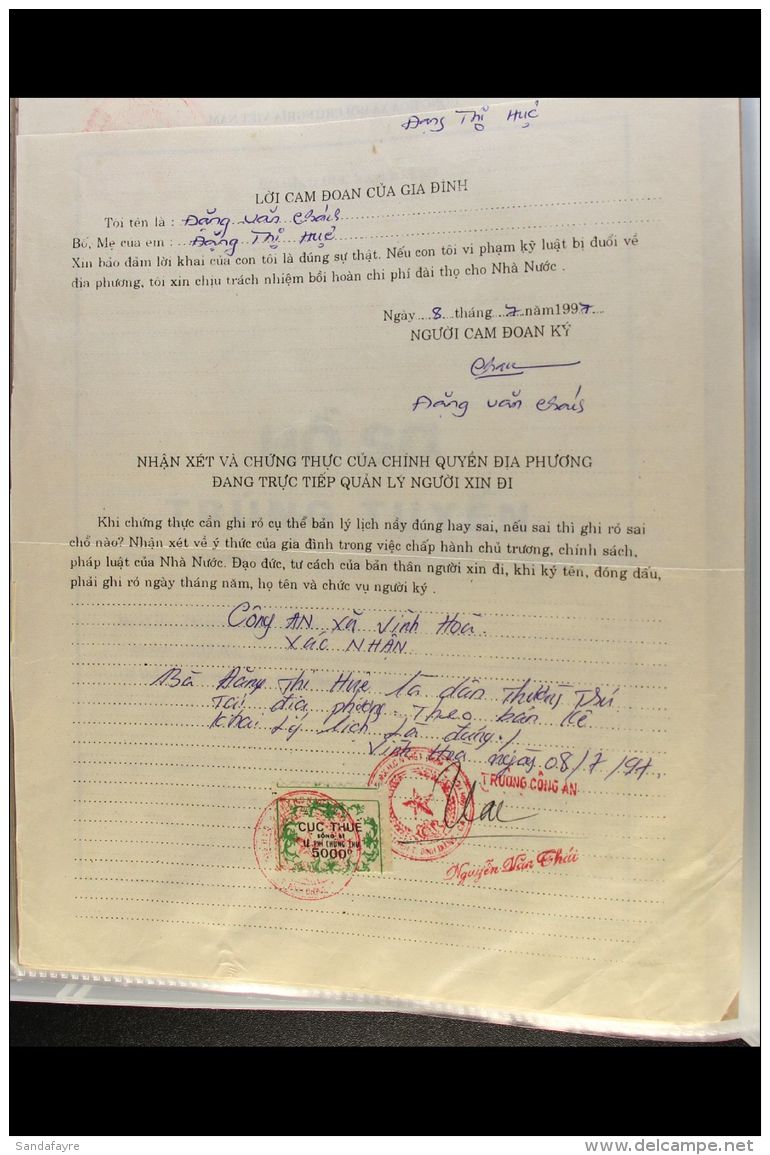 Đặng Thị Huệ
LỜI CAM ĐOAN CỦA GIA ĐÌNH
Tôi tên là : Đặng Văn
Bố, Mẹ của em : Đặng Thị Huệ
Xin bảo đảm lời khai của con tôi là đúng sự thật. Nếu con tôi vi phạm kỷ luật bị đuổi về
địa phương, tôi xin chịu trách nhiệm bồi hoàn chi phí đài thọ cho Nhà Nước .
Ngày 8 tháng 7 năm 1997
NGƯỜI CAM ĐOAN KÝ
Đặng Văn
NHẬN XÉT VÀ CHỨNG THỰC CỦA CHÍNH QUYỀN ĐỊA PHƯƠNG
ĐANG TRỰC TIẾP QUẢN LÝ NGƯỜI XIN ĐI
Khi chứng thực cần ghi ró cụ thể bản lý lịch nầy đúng hay sai, nếu sai thì ghi ró sai
chỗ nào? Nhận xét về ý thức của gia đình trong việc chấp hành chủ trương, chính sách,
pháp luật của Nhà Nước. Đạo đức, tư cách của bản thân người xin đi, khi ký tên, đóng dấu,
phải ghi ró ngày tháng năm, họ tên và chức vụ người ký .
Công AN xã Vĩnh Hoà.
XÁC NHẬN
Bà Đặng Thị Huệ là dân Thường Trú
Tại địa phương. Theo bản kê
khai lý lịch là đúng./
Vĩnh Hoà ngày 08/7/97.
TRƯỞNG CÔNG AN
CỤC THUẾ
SÔNG BÉ
LỆ PHÍ CHỨNG THƯ
5000đ
Nguyễn Văn Thái
Sandafayre
delcampe.net